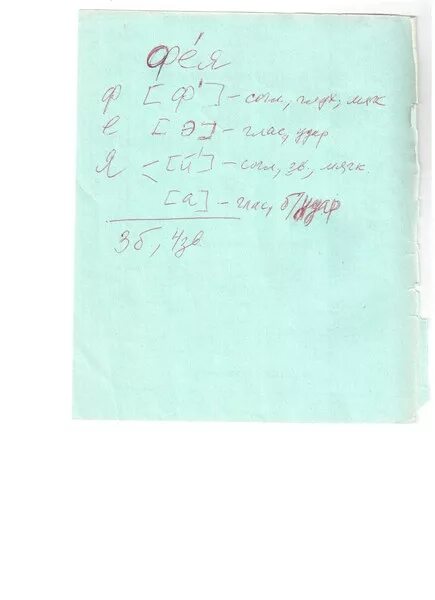 фе́я
ф [ф'] - согл, глух, мягк
е [э] - глас, удар
я < [й'] - согл, зв, мягк.
[а] - глас, б/удар
3б, 4зв